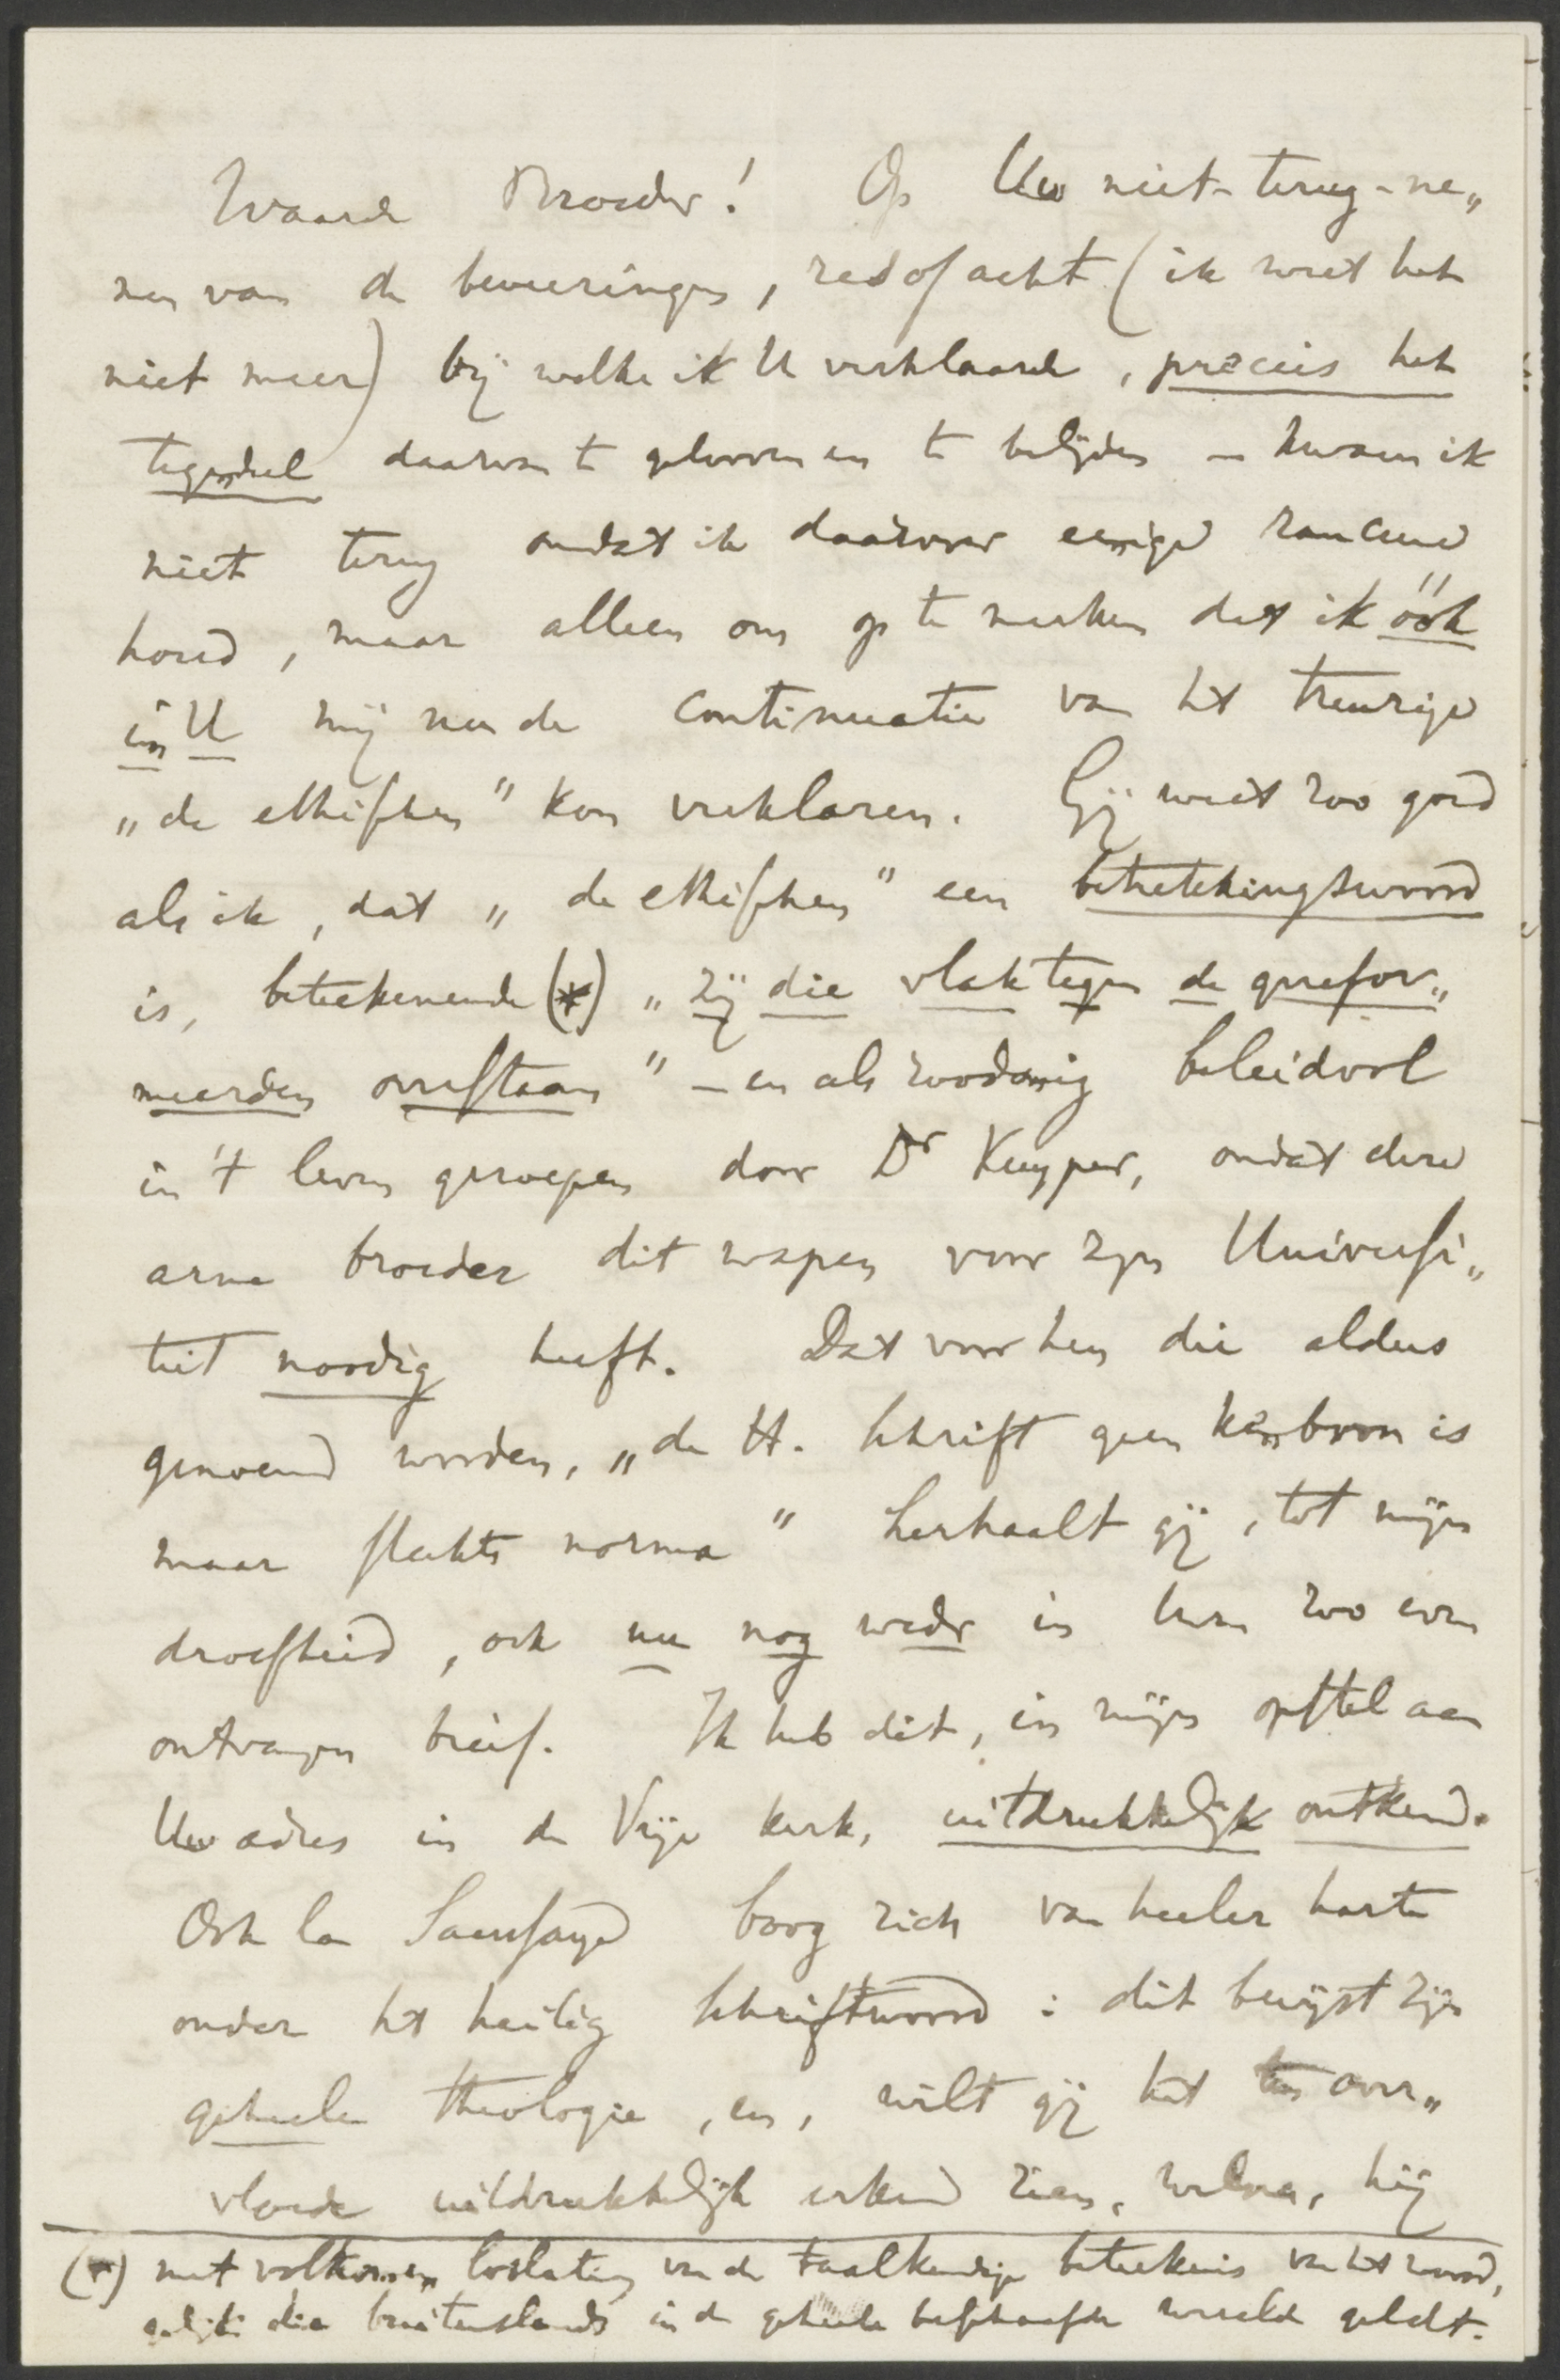 Waarde Broeder! Op Uw niet-terug-ne„
men van de beweeringen, zes of acht (ik weet het
niet meer) bij welke ik U verklaarde, precies het
tegendeel daarvan te gelooven en te belijden – kwam ik
niet terug omdat ik daarover eenige rancune
houd, maar alleen om op te merken dat ik óók
in U mij nu de continuatie van het treurige
„de ethischen" kon verklaren. Gij weet zoo goed
als ik, dat „de ethischen" een betrekkingswoord
is, beteekenende (*) „zij die vlak tegen de gerefor„
meerden overstaan" – en als zoodanig beleidvol
in 't leven geroepen door Dr Kuyper, omdat deze
arme broeder dit wapen voor zijn Universi„
teit noodig heeft. Dat voor hen die aldus
genoemd worden, „de H. Schrift geen kenbron is
maar slechts norma" herhaalt gij, tot mijn
droefheid, ook nu nog weder in Uwen zoo even
ontvangen brief. Ik heb dit, in mijn opstel aan
Uw adres in de Vrije Kerk, uitdrukkelijk ontkend.
Ook la Saussaye boog zich van heeler harte
onder het heilig Schriftwoord: dit bewijst zijn
geheele theologie, en, wilt gij het ten over„
vloede uitdrukkelijk erkend zien, welnu, hij
(*) met volkomen loslating van de taalkundige beteekenis van het woord,
gelijk die buitenslands in de geheele beschaafde wereld geldt.